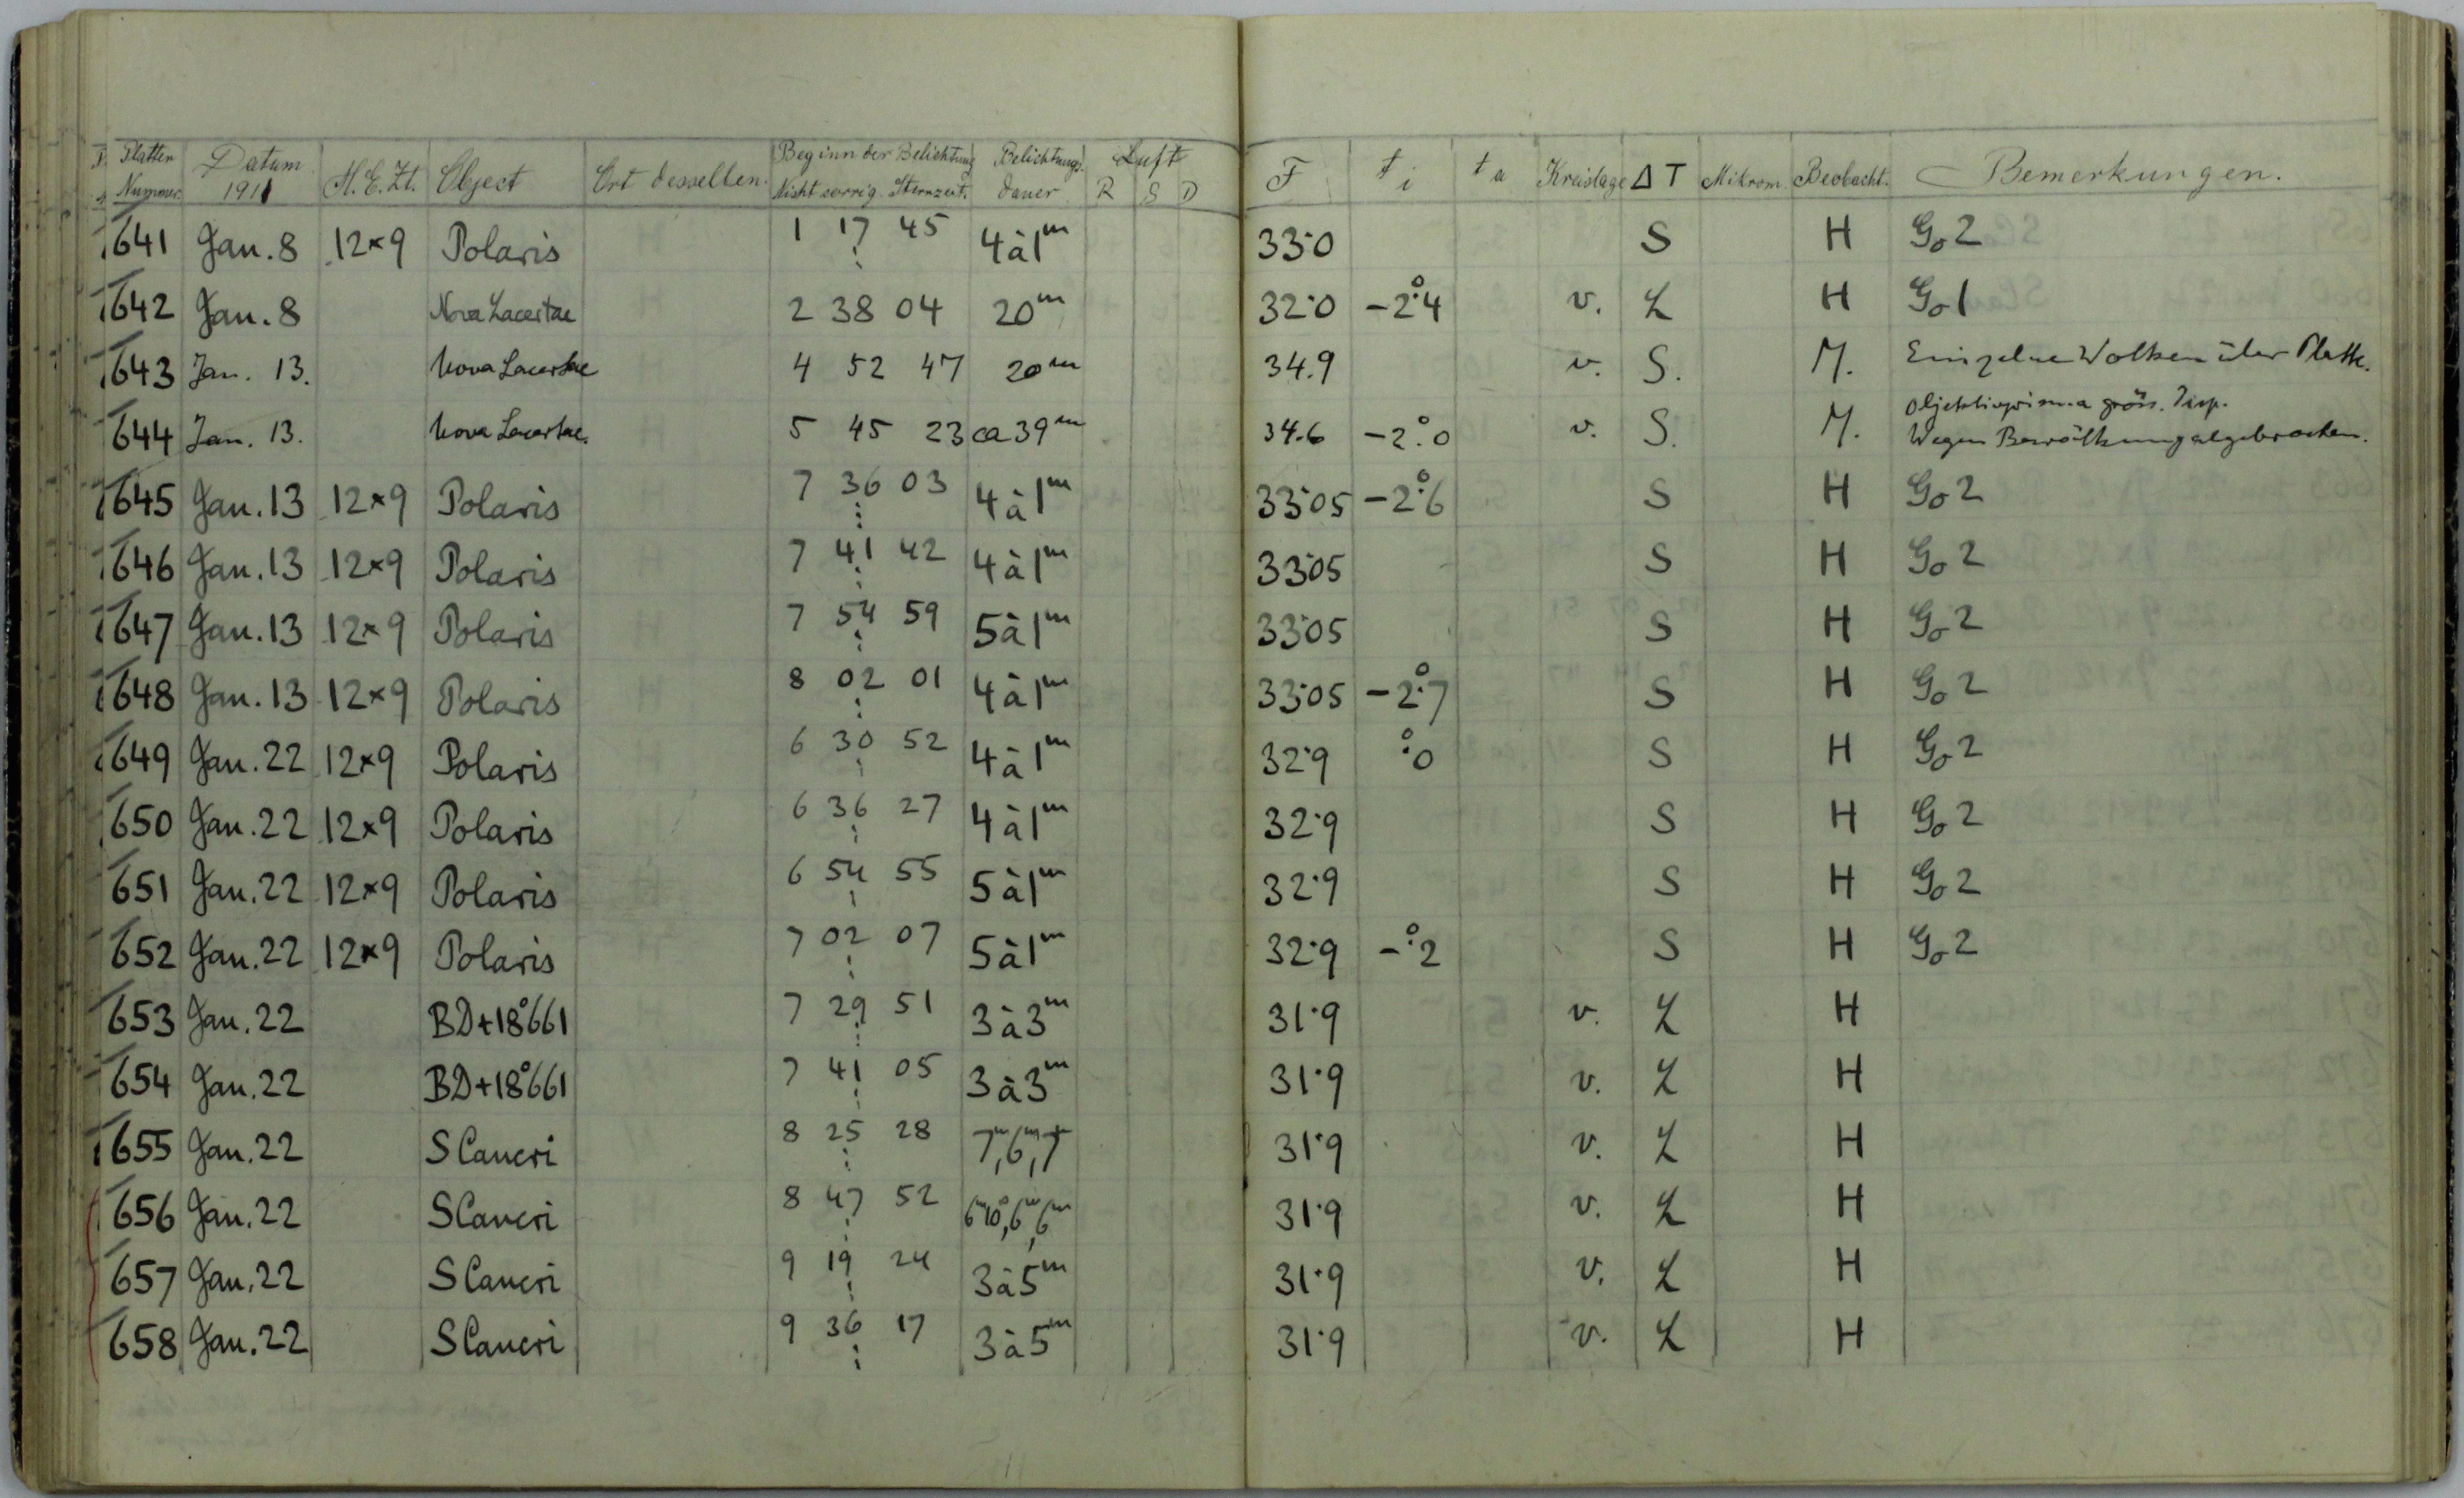 Platten Nummer. Datum 1911 M.E.Zt. Object Ort desselben. Beginn der Belichtung Nicht corrig. Sternzeit. Belichtungs dauer Luft R S D F t i t a Kreislage Δ T Mikrom. Beobacht. Bemerkungen.
641 Jan. 8 12×9 Polaris 1 17 45 4 à 1m 33.0 S H Go 2
642 Jan. 8 Nova Lacertae 2 38 04 20m 32.0 -2°.4 v. L H Go 1
643 Jan. 13. Nova Lacertae 4 52 47 20m 34.9 v. S. M. Einzelne Wolken über Platte.
644 Jan. 13. Nova Lacertae. 5 45 23 ca 39m 34.6 -2°.0 v. S. M. Objektivprisma gröss. Disp.
Wegen Bewölkung abgebrochen.
645 Jan. 13 12×9 Polaris 7 36 03 4 à 1m 33.05 -2°.6 S H Go 2
646 Jan. 13 12×9 Polaris 7 41 42 4 à 1m 33.05 S H Go 2
647 Jan. 13 12×9 Polaris 7 54 59 5 à 1m 33.05 S H Go 2
648 Jan. 13 12×9 Polaris 8 02 01 4 à 1m 33.05 -2°.7 S H Go 2
649 Jan. 22 12×9 Polaris 6 30 52 4 à 1m 32.9 °.0 S H Go 2
650 Jan. 22 12×9 Polaris 6 36 27 4 à 1m 32.9 S H Go 2
651 Jan. 22 12×9 Polaris 6 54 55 5 à 1m 32.9 S H Go 2
652 Jan. 22 12×9 Polaris 7 02 07 5 à 1m 32.9 -°.2 S H Go 2
653 Jan. 22 BD+18°661 7 29 51 3 à 3m 31.9 v. L H
654 Jan. 22 BD+18°661 7 41 05 3 à 3m 31.9 v. L H
655 Jan. 22 S Cancri 8 25 28 7m, 6m, 7m 31.9 v. L H
656 Jan. 22 S Cancri 8 47 52 6m10s, 6m, 6m 31.9 v. L H
657 Jan. 22 S Cancri 9 19 24 3 à 5m 31.9 v. L H
658 Jan. 22 S Cancri 9 36 17 3 à 5m 31.9 v. L H